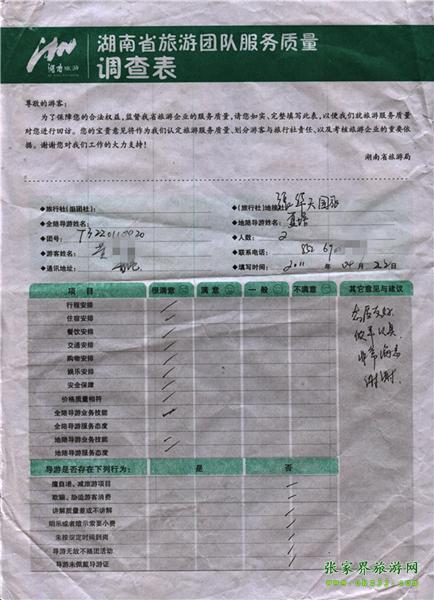 湖南旅游
湖南省旅游团队服务质量
调查表
尊敬的游客：
为了保障您的合法权益，监督我省旅游企业的服务质量，请您如实、完整填写此表，以便我们就旅游服务质量
对您进行回访。您的宝贵意见将作为我们认定旅游服务质量、划分游客与旅行社责任、以及考核旅游企业的重要依
据。谢谢您对我们工作的大力支持！
湖南省旅游局
◆旅行社(组团社)： ◆(旅行社)地接社：
◆全陪导游姓名： ◆地陪导游姓名：
◆团号： ◆人数：2
◆游客姓名： ◆联系电话：
◆通讯地址： ◆填写时间：2011年04月22日
项 目 很满意 满 意 一 般 不满意 其它意见与建议
行程安排
住宿安排
餐饮安排
交通安排
购物安排
娱乐安排
安全保障
价格质量相符
全陪导游业务技能
全陪导游服务态度
地陪导游业务技能
地陪导游服务态度
谢谢
导游是否存在下列行为： 是 否
擅自增、减旅游项目
欺骗、胁迫游客消费
讲解质量差或不讲解
明示或者暗示索要小费
未按规定时间到岗
导游无故不随团活动
导游未佩戴导游证
张家界旅游网